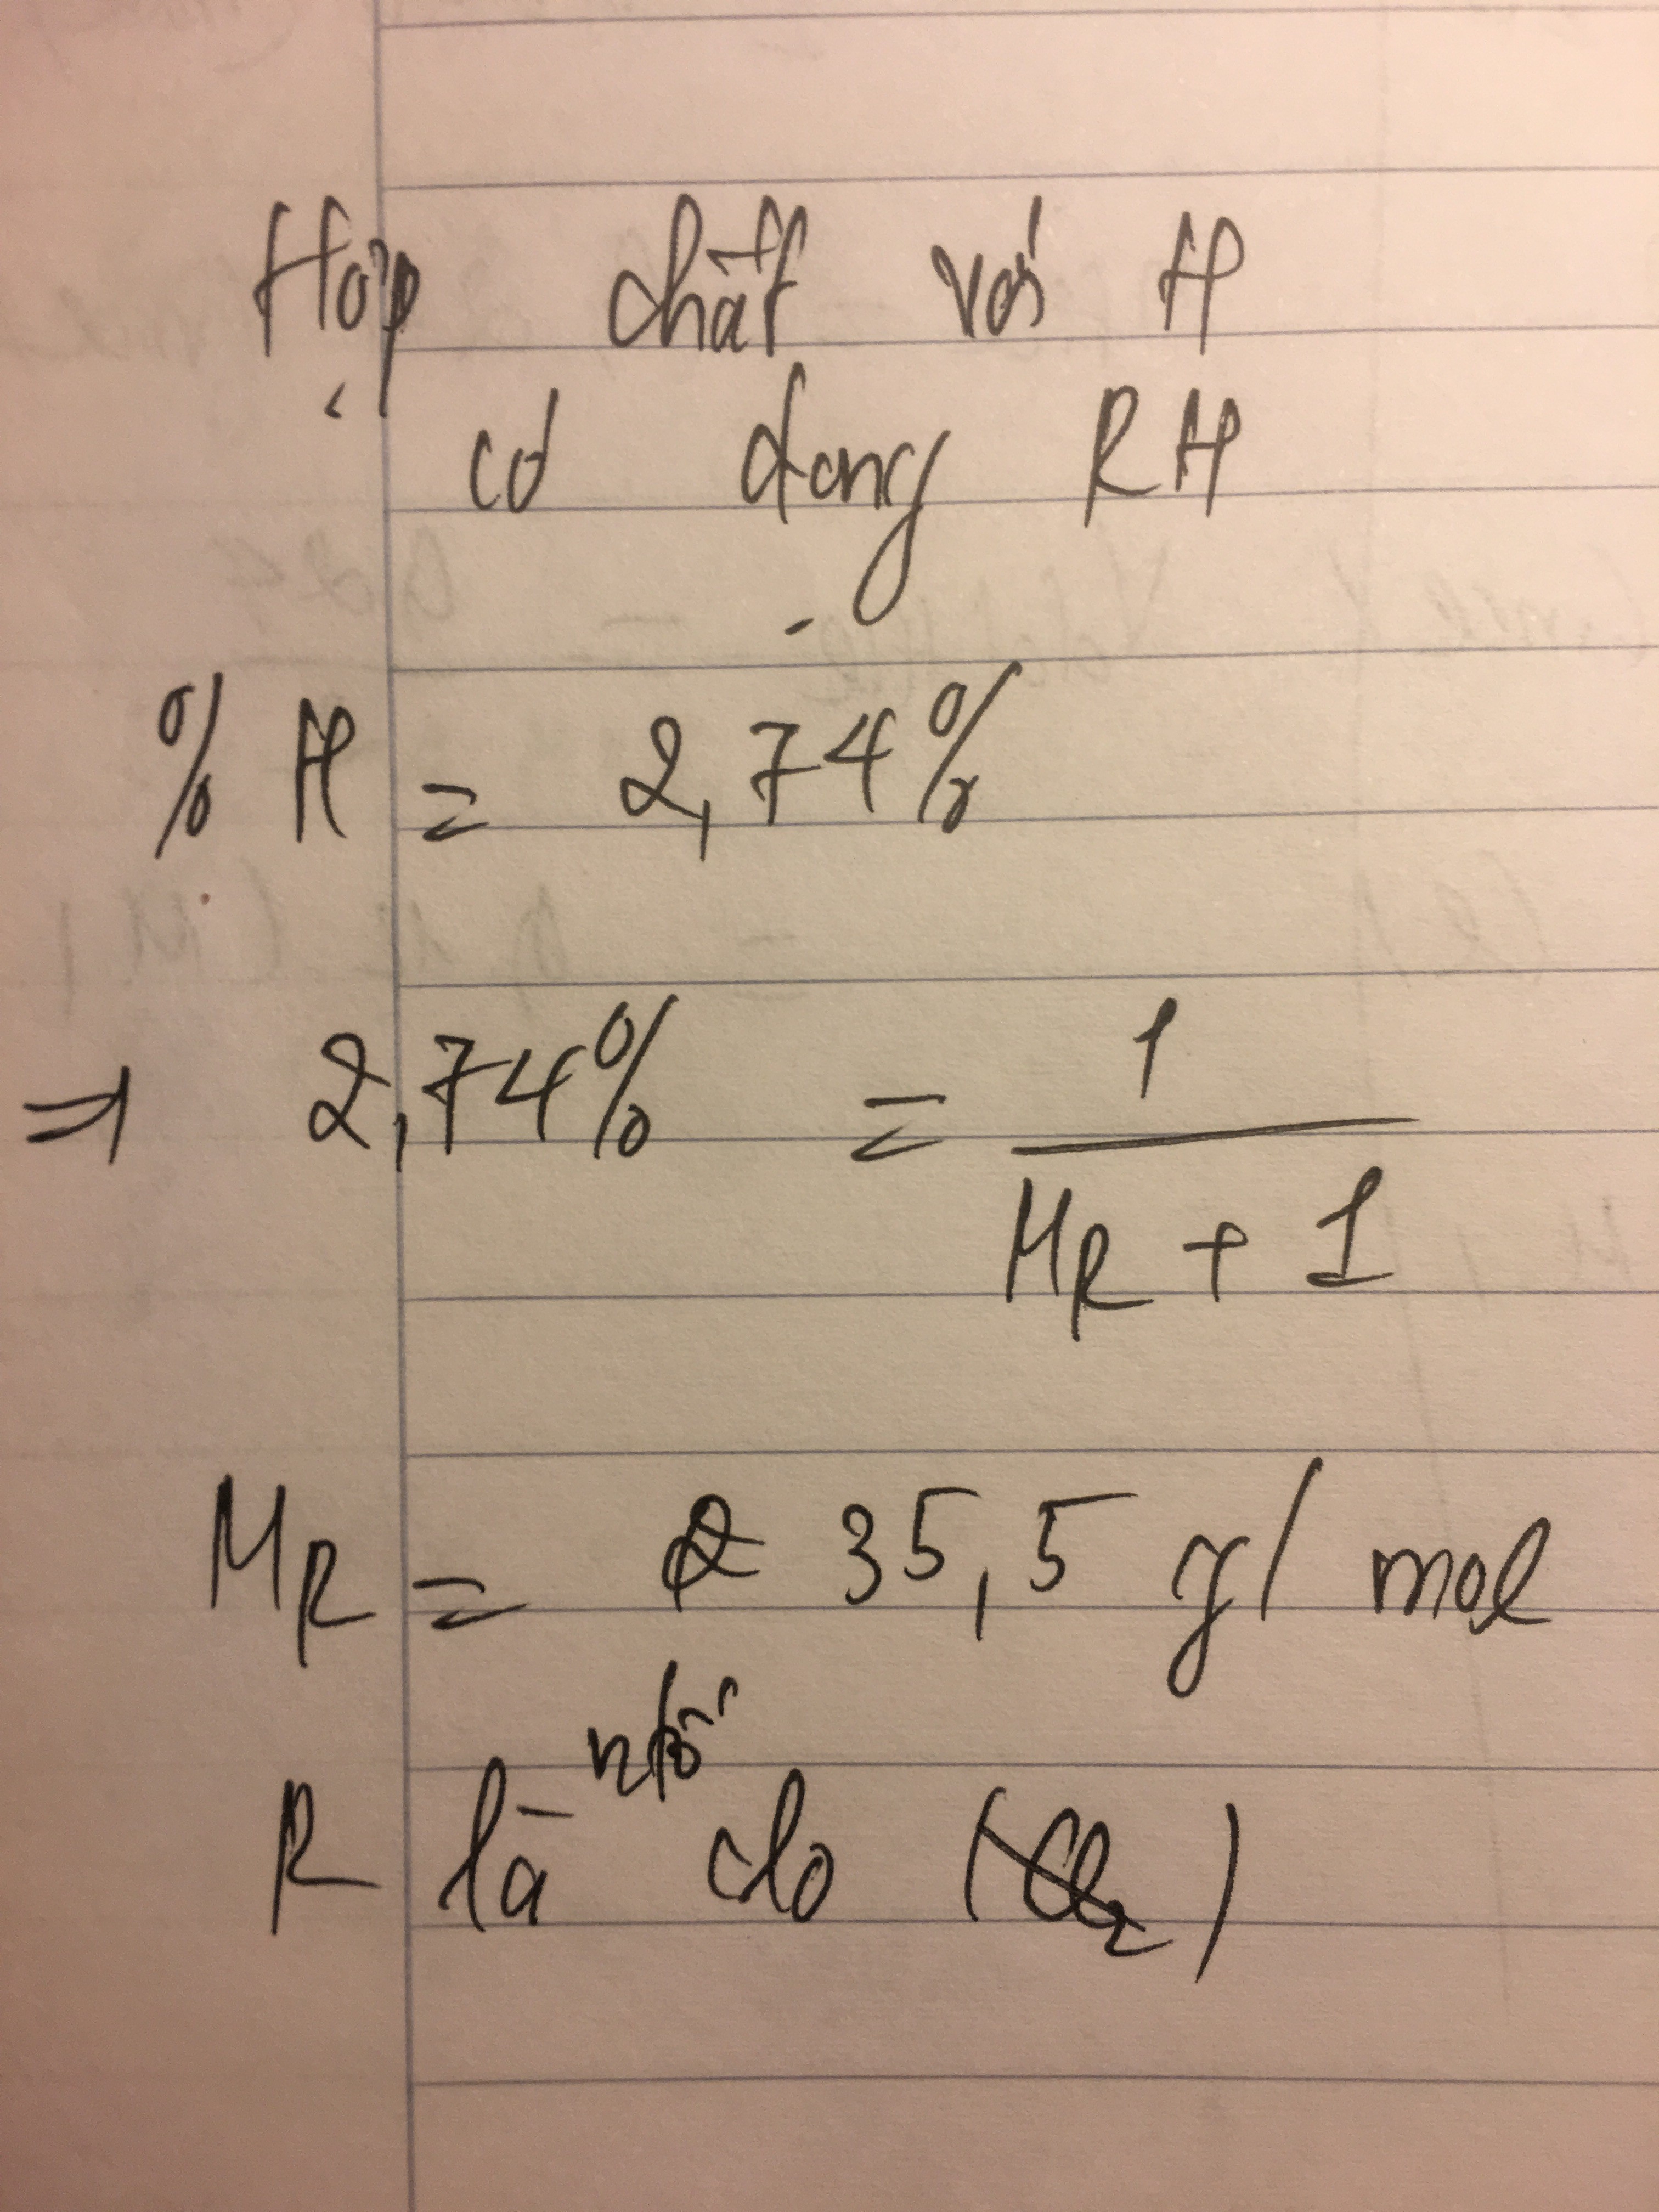 Hợp chất với H
có dạng RH
% H = 2,74%
⇒ 2,74% = 1
M_R + 1
M_R = 35,5 g/mol
ntố
R là clo (Cl₂)